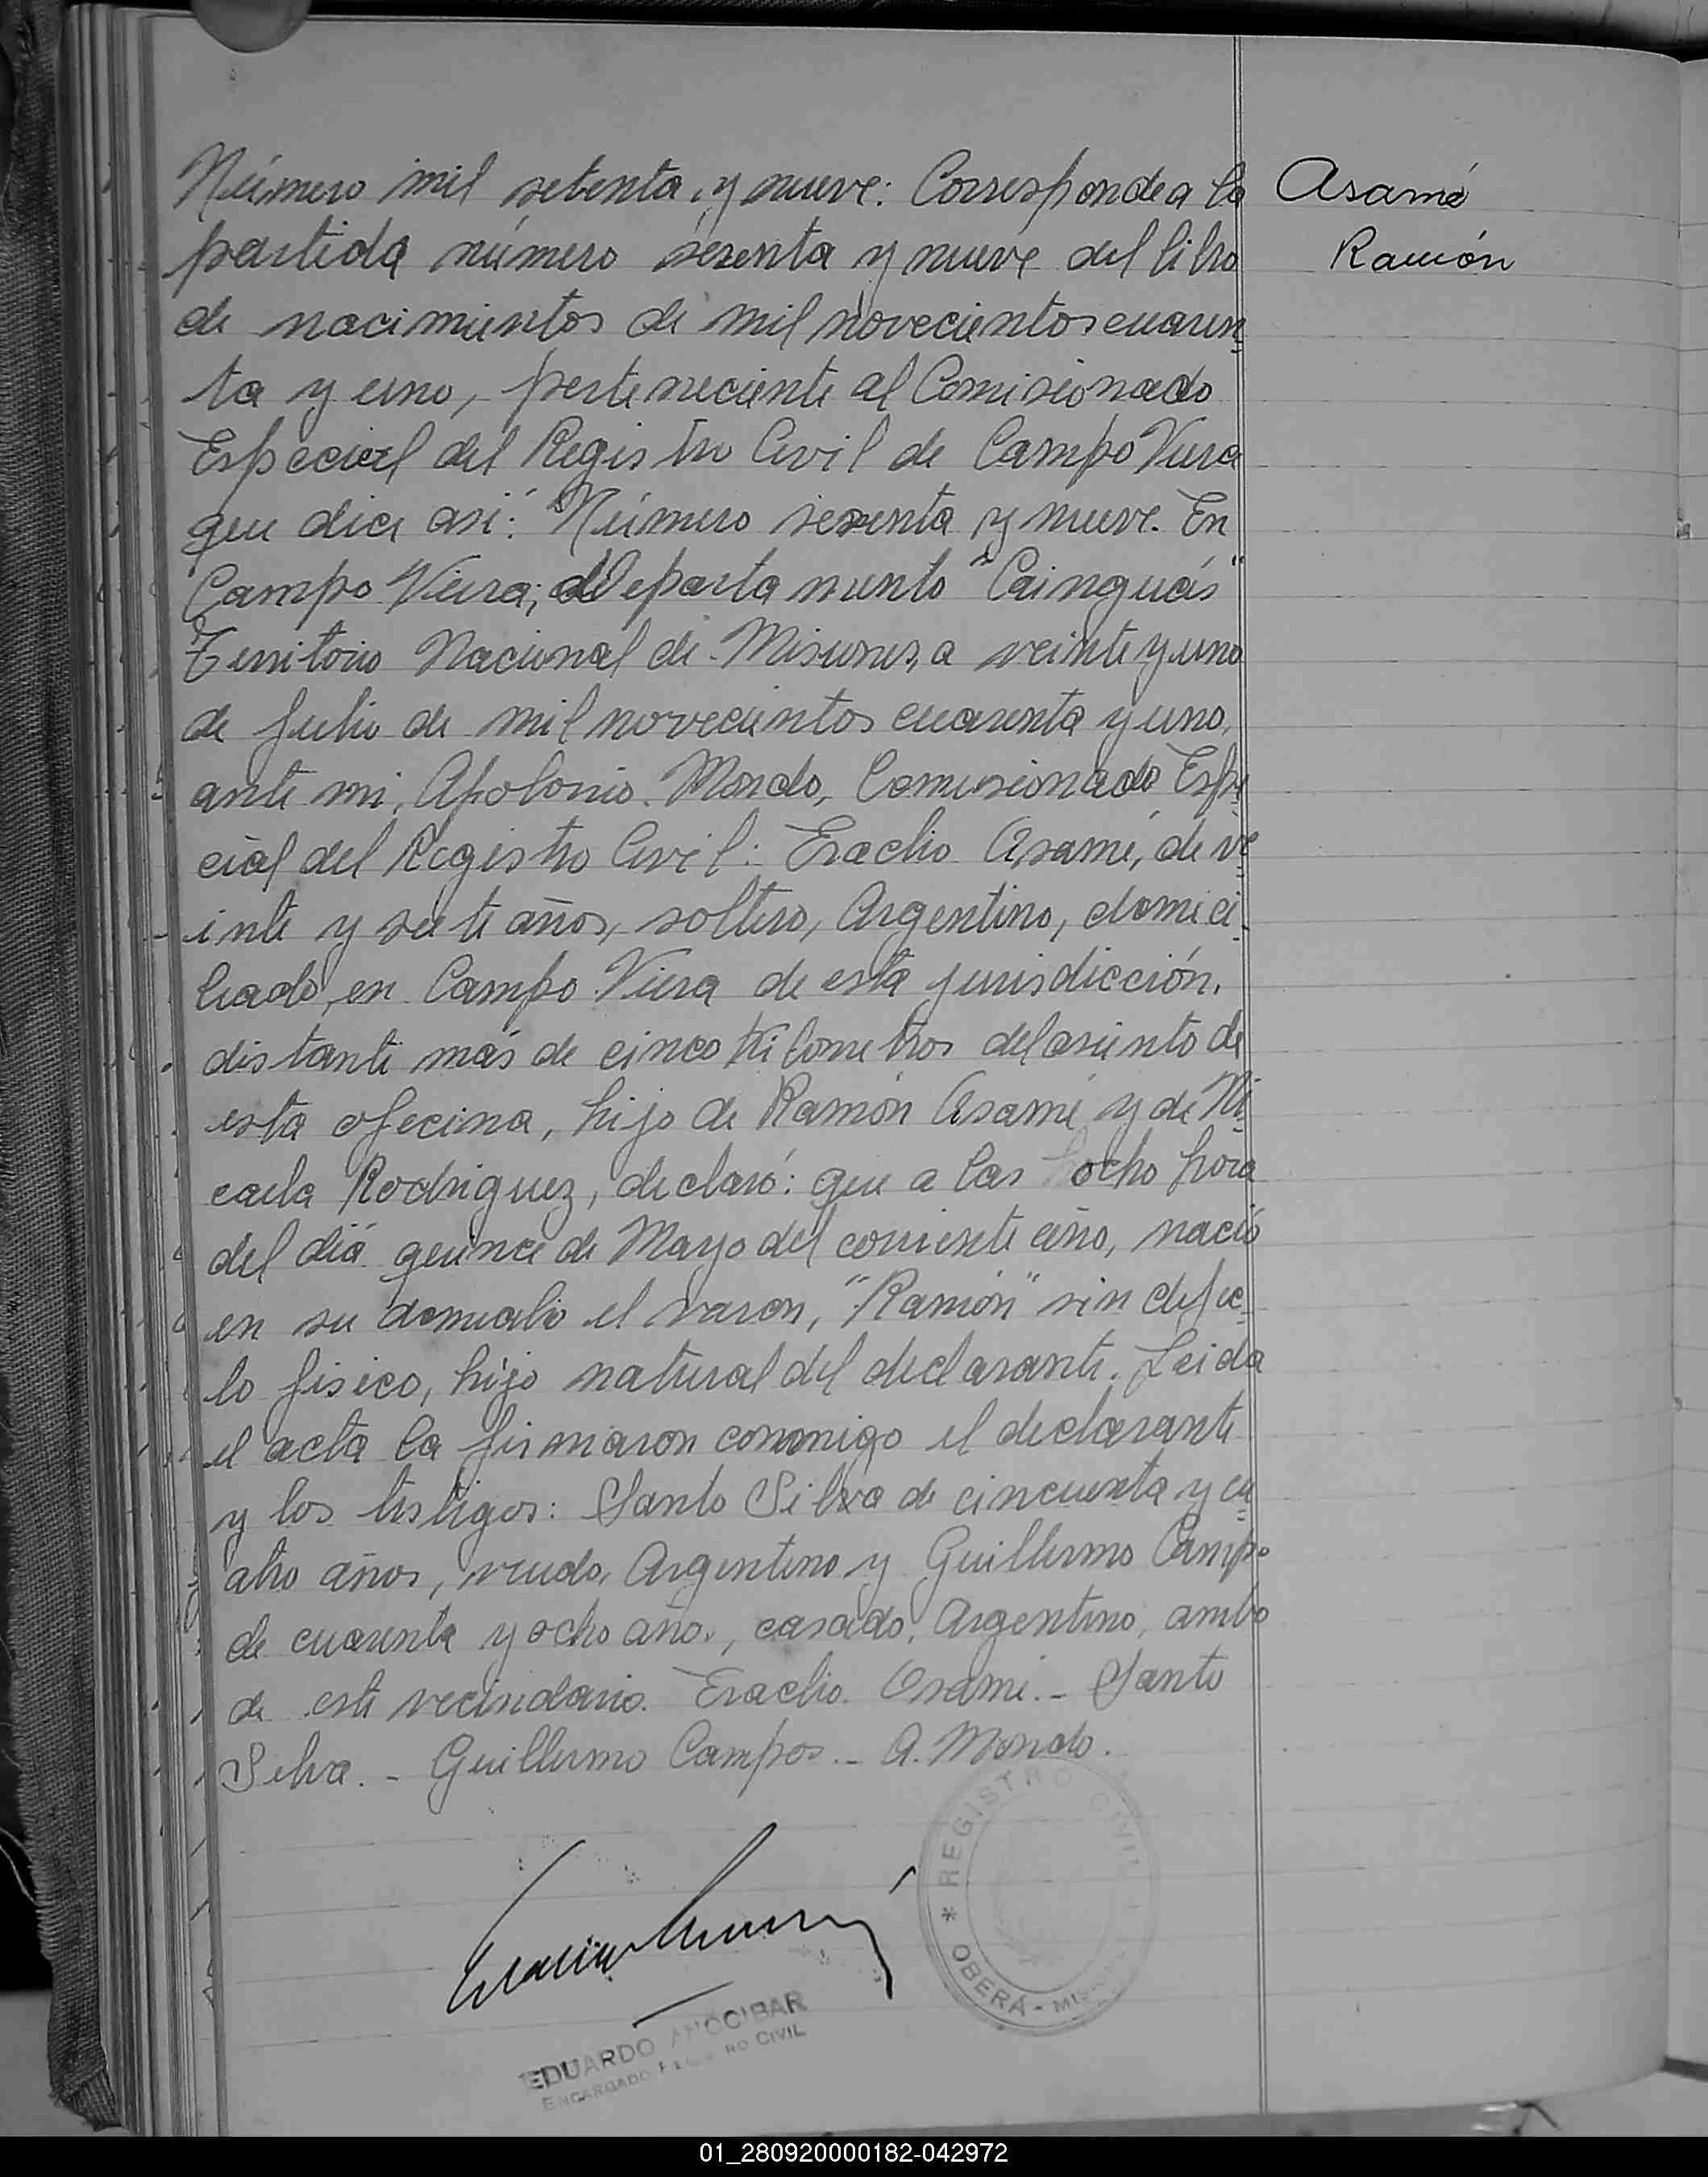 Número mil setenta, y nueve: Corresponde a la
partida número sesenta y nueve del libro
de nacimientos de mil novecientos cuaren
ta y uno, perteneciente al Comisionado
Especial del Registro Civil de Campo Viera
que dice así: "Número sesenta y nueve. En
Campo Viera, departamento "Cainguás"
Territorio Nacional de Misiones, a veinte y uno
de Julio de mil novecientos cuarenta y uno,
ante mi, Apolonio Mondo, Comisionado Espe
cial del Registro Civil: Eraclio Asamé, de ve
inte y siete años, soltero, Argentino, domici
liado, en Campo Viera de esta jurisdicción,
distante más de cinco kilometros del asiento de
esta oficina, hijo de Ramón Asamé y de Mi
caela Rodriguez, declaró: que a las ocho hora
del día quince de Mayo del corriente año, nació
en su domicilio el varon, "Ramón" sin defec
to fisico, hijo natural del declarante. Leida
el acta la firmaron conmigo el declarante
y los testigos: Santo Silva de cincuenta y cu
atro años, viudo, Argentino y Guillermo Campo
de cuarenta y ocho año., casado, Argentino, ambo
de este vecindario. Eraclio Asamé.- Santo
Silva.- Guillermo Campos.- A. Mondo.
Asamé
Ramón
* REGISTRO CIVIL *
OBERÁ - MISIONES
EDUARDO ANOCIBAR
ENCARGADO REGISTRO CIVIL
01_280920000182-042972